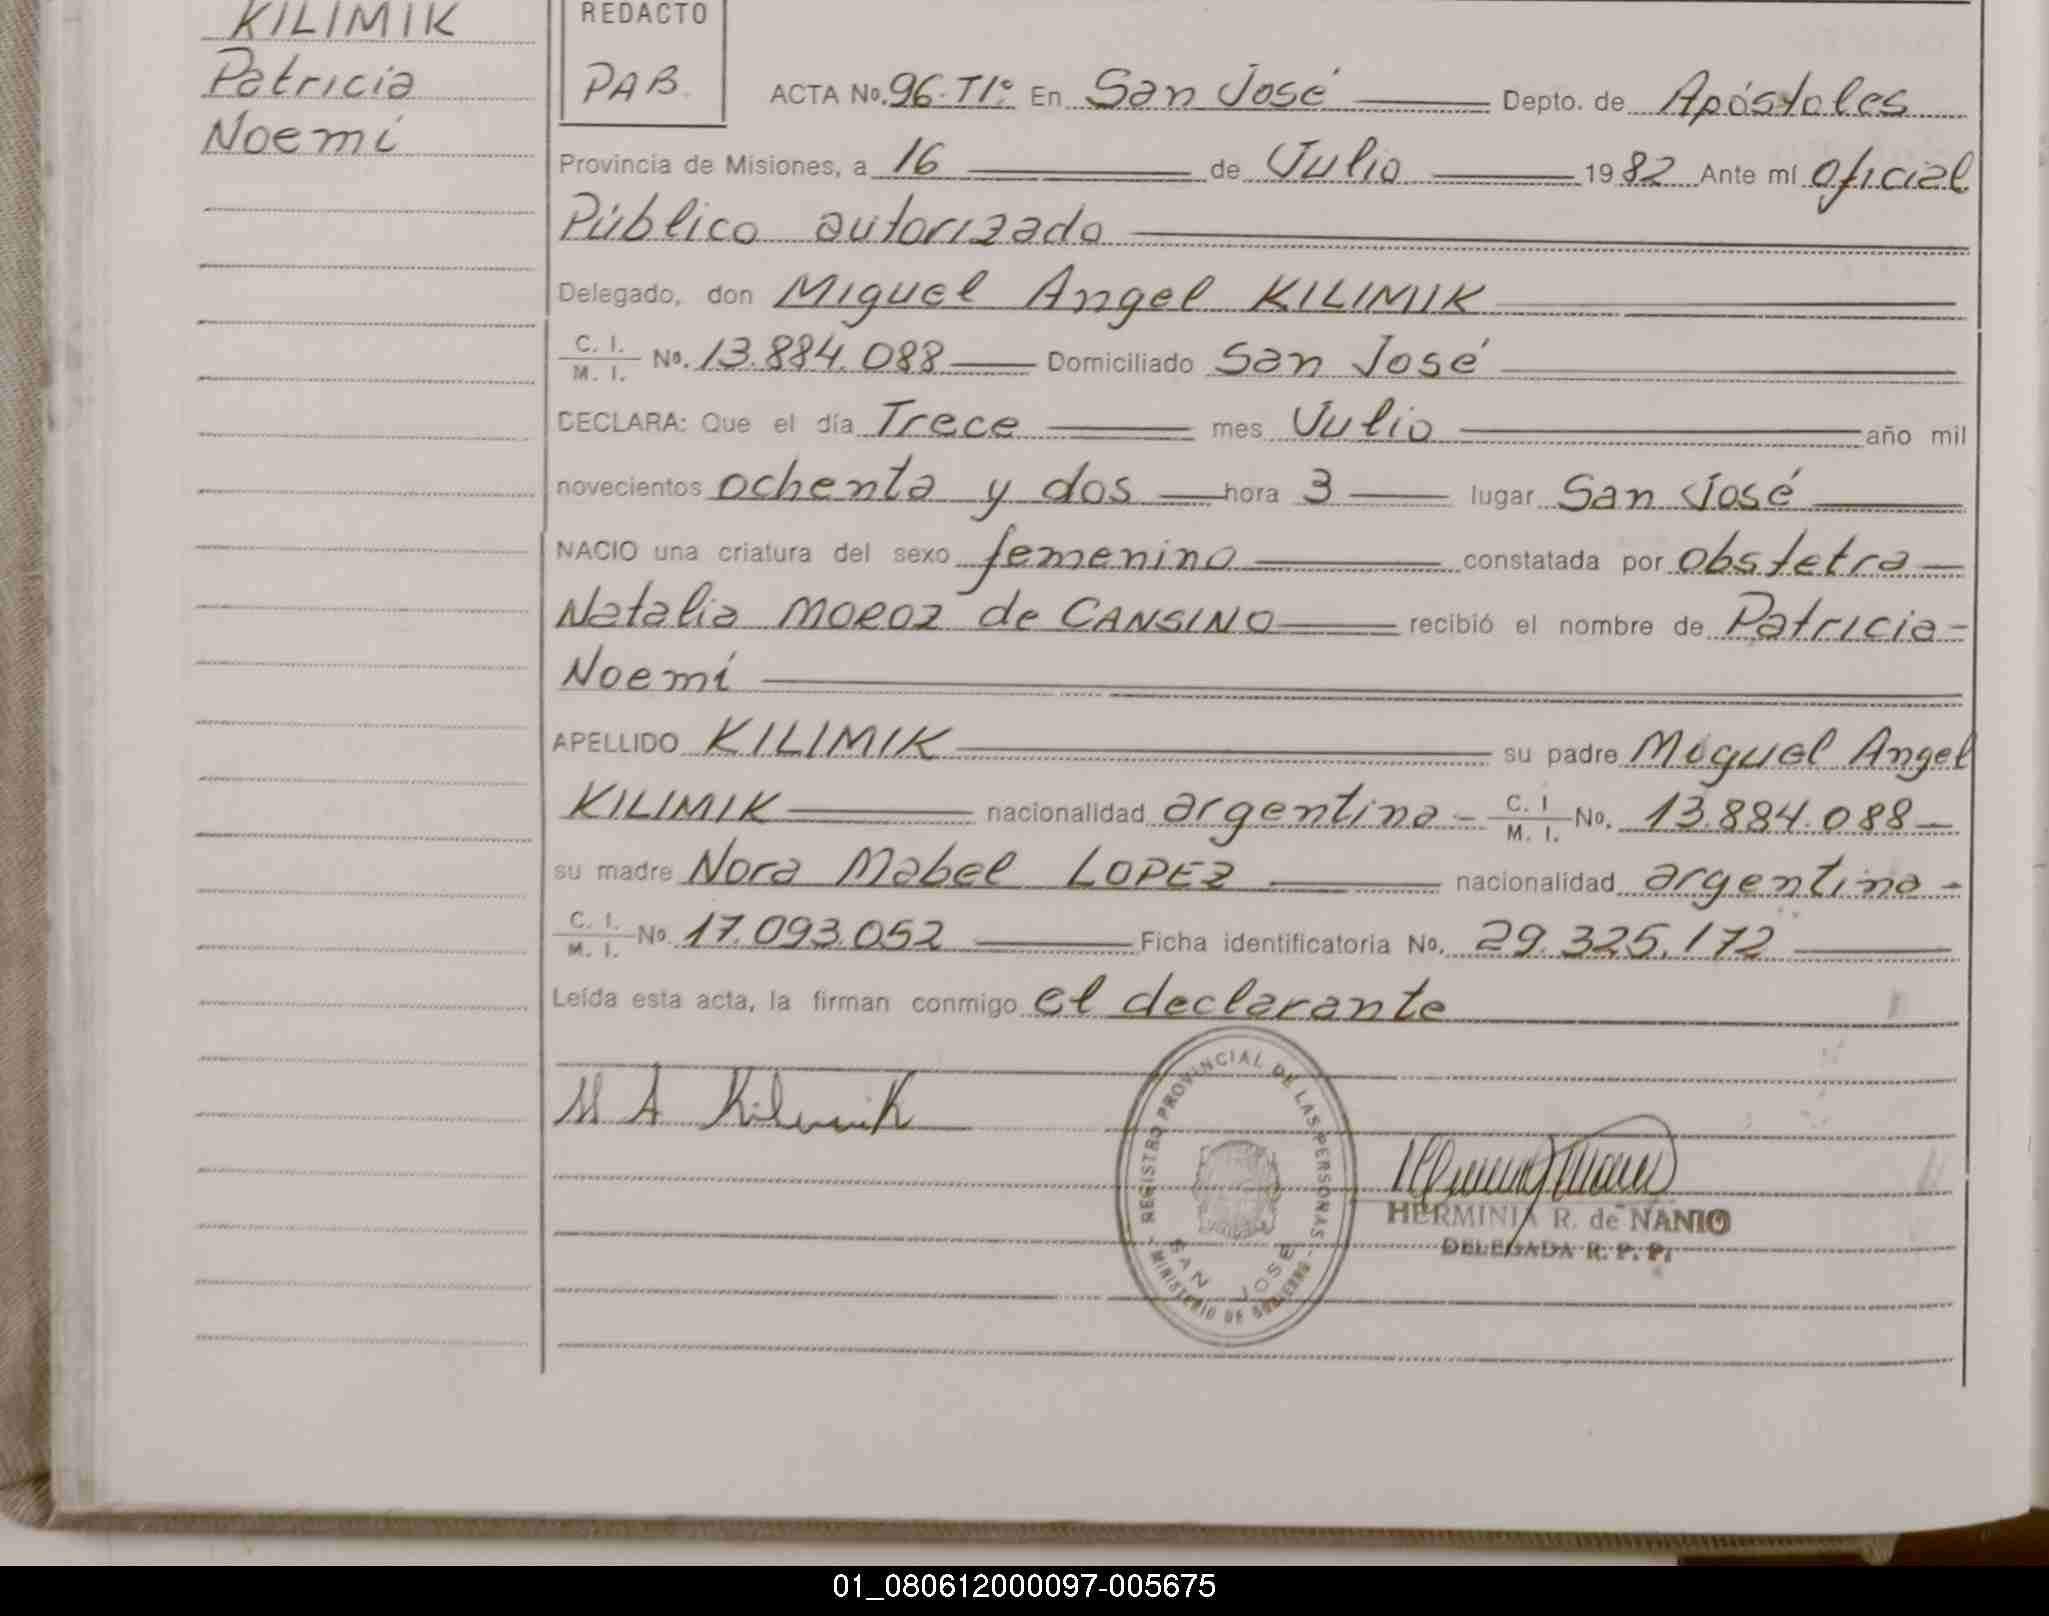 KILIMIK
Patricia
Noemí
REDACTO
PAB.
ACTA No. 96-TIº En San José Depto. de Apóstoles
Provincia de Misiones, a 16 de Julio 1982 Ante mí Oficial
Público autorizado
Delegado, don Miguel Angel KILIMIK
C. I. M. I. No. 13.884.088 Domiciliado San José
DECLARA: Que el día Trece mes Julio año mil
novecientos ochenta y dos hora 3 lugar San José
NACIO una criatura del sexo femenino constatada por obstetra
Natalia MOROZ de CANSINO recibió el nombre de Patricia
Noemí
APELLIDO KILIMIK su padre Miguel Angel
KILIMIK nacionalidad argentina - C. I M. I. No. 13.884.088
su madre Nora Mabel LOPEZ nacionalidad argentina -
C. I. M. I. No 17.093.052 Ficha identificatoria No. 29.325.172
Leída esta acta, la firman conmigo el declarante
M A Kilimik
REGISTRO PROVINCIAL DE LAS PERSONAS
SAN JOSE
MINISTERIO DE GOBIERNO
HERMINIA R. de NANIO
DELEGADA R. P. P.
01_080612000097-005675